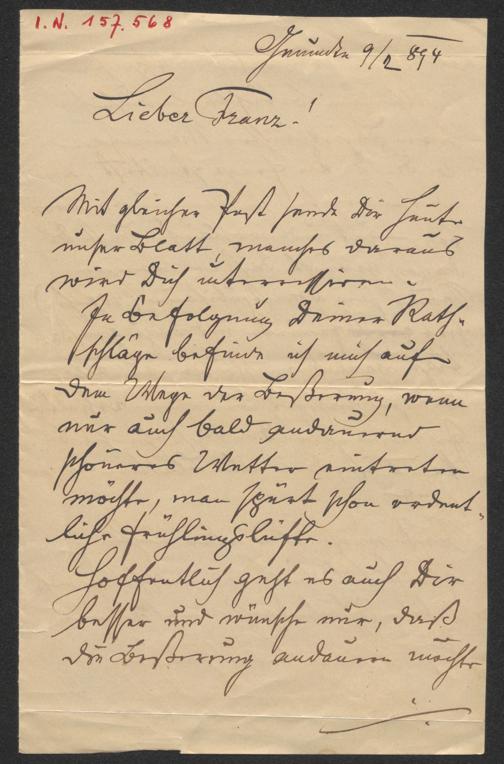 I. N. 157.568
Gmunden 9/2 894
Lieber Franz!
Mit gleicher Post sende Dir heute
unser Blatt, manches daraus
wird Dich interessiren.
In Befolgung Deiner Rath-
schläge befinde ich mich auf
dem Wege der Beßerung, wenn
nur auch bald andauernd
schöneres Wetter eintreten
möchte, man spürt schon ordent-
liche Frühlingslüfte.
Hoffentlich geht es auch Dir
besser und wünsche nur, daß
die Beßerung andauern möchte